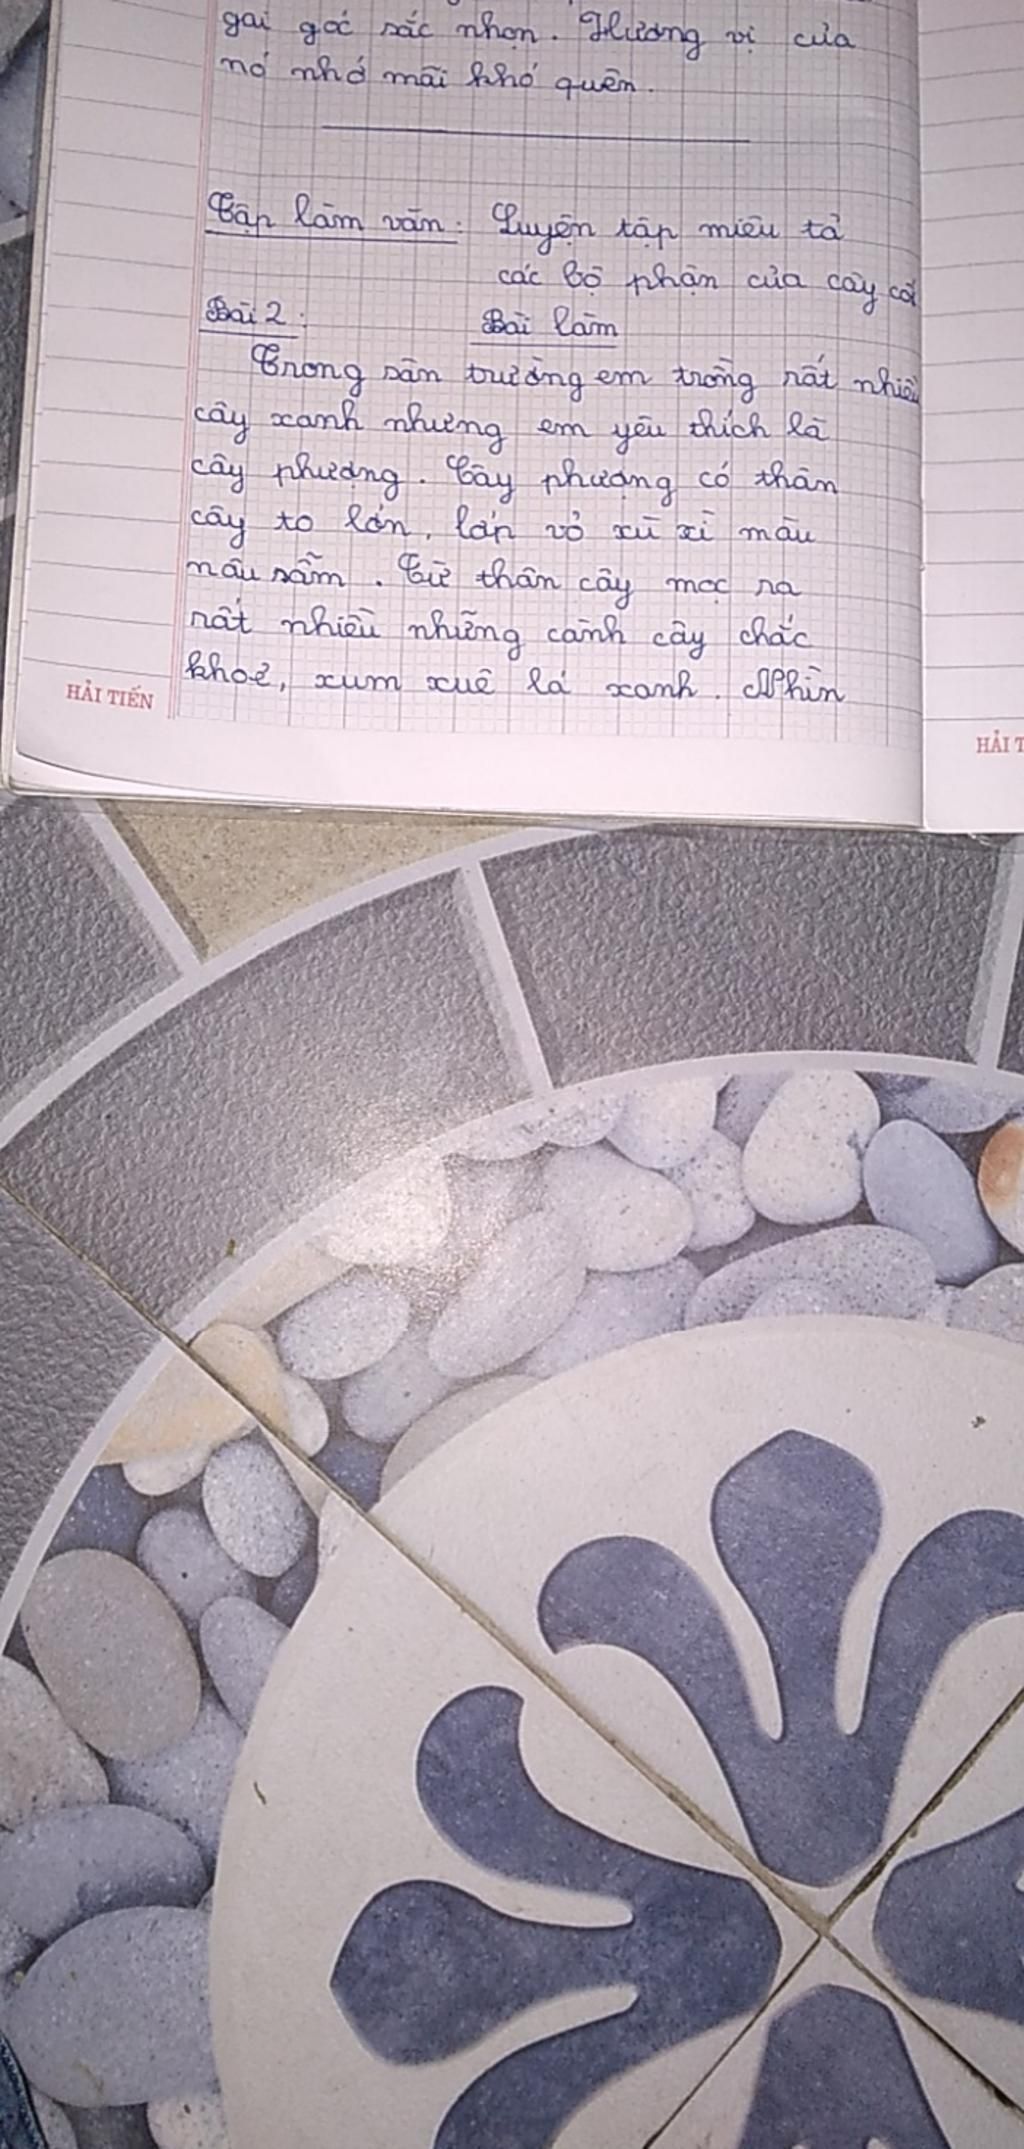 gai góc sắc nhọn. Hương vị của
nó nhớ mãi khó quên.
Tập làm văn: Luyện tập miêu tả
các bộ phận của cây cối
Bài 2: Bài làm
Trong sân trường em trồng rất nhiều
cây xanh nhưng em yêu thích là
cây phượng. Cây phượng có thân
cây to lớn, lớp vỏ xù xì màu
nâu sẫm. Từ thân cây mọc ra
rất nhiều những cành cây chắc
khoẻ, xum xuê lá xanh. Nhìn
HẢI TIẾN
HẢI T